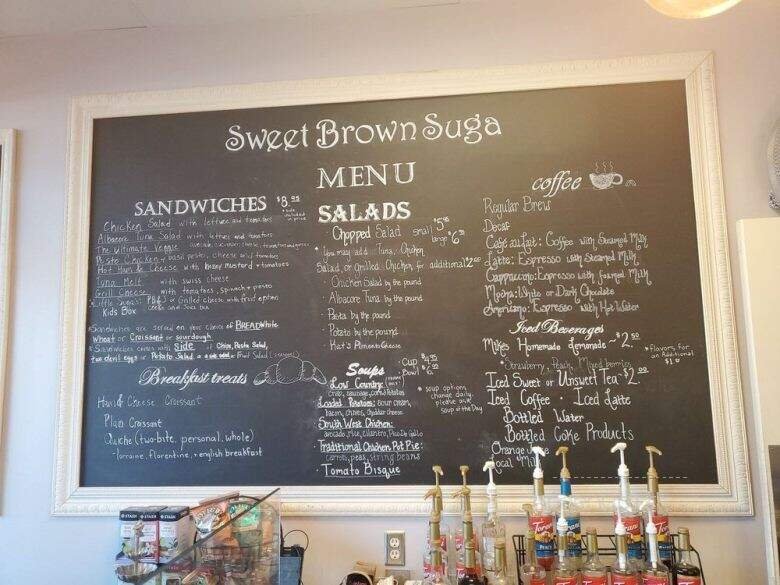 Sweet Brown Suga
MENU
SANDWICHES $8.95
Chicken Salad with lettuce and tomatoes
Albacore Tuna Salad with lettuce and tomatoes
The Ultimate Veggie
Pesto Chicken basil pesto, cheese and tomatoes
Hot Ham & Cheese with honey mustard + tomatoes
Tuna Melt with swiss cheese
Grill Cheese with tomatoes, spinach + pesto
Little Suga's: PB&J or Grilled cheese with fruit option
Kids Box
Sandwiches are served on your choice of BREAD White
Wheat or Croissant or sourdough
Sandwiches comes with side of Chips, Pasta Salad,
two devil eggs or Potato Salad or Fruit Salad (seasonal)
Breakfast treats
Ham & Cheese Croissant
Plain Croissant
Quiche (two-bite, personal, whole)
-lorraine, florentine, + english breakfast
SALADS
Chopped Salad small $5.95
large $6.95
• You may add Tuna, Chicken
Salad, or Grilled Chicken for additional
• Chicken Salad by the pound
• Albacore Tuna by the pound
• Pasta by the pound
• Potato by the pound
Pimento Cheese
Soups
• Cup
• Bowl
Low Country:
crab, sausage, corn, potatoes
Loaded Potatoes: sour cream,
bacon, chives, cheddar cheese
South West Chicken:
avocado, rice, cilantro, Pico De Gallo
Traditional Chicken Pot Pie:
carrots, peas, string beans
• Tomato Bisque
* soup options
change daily,
please ask
soup of the Day
coffee
Regular Brew
Decaf
Café au lait: Coffee with Steamed Milk
Latte: Espresso with Steamed Milk
Cappuccino: Espresso with Foamed Milk
Mocha: White or Dark Chocolate
Americano: Espresso with Hot Water
Iced Beverages
Mike's Homemade Lemonade ~ $2.50
• Strawberry, Peach, Mixed berries
* Flavors for
an Additional
Iced Sweet or Unsweet Tea
Iced Coffee • Iced Latte
Bottled Water
Bottled Coke Products
Orange Juice
Local Milk
STASH
STASH
Torani
Torani
Torani